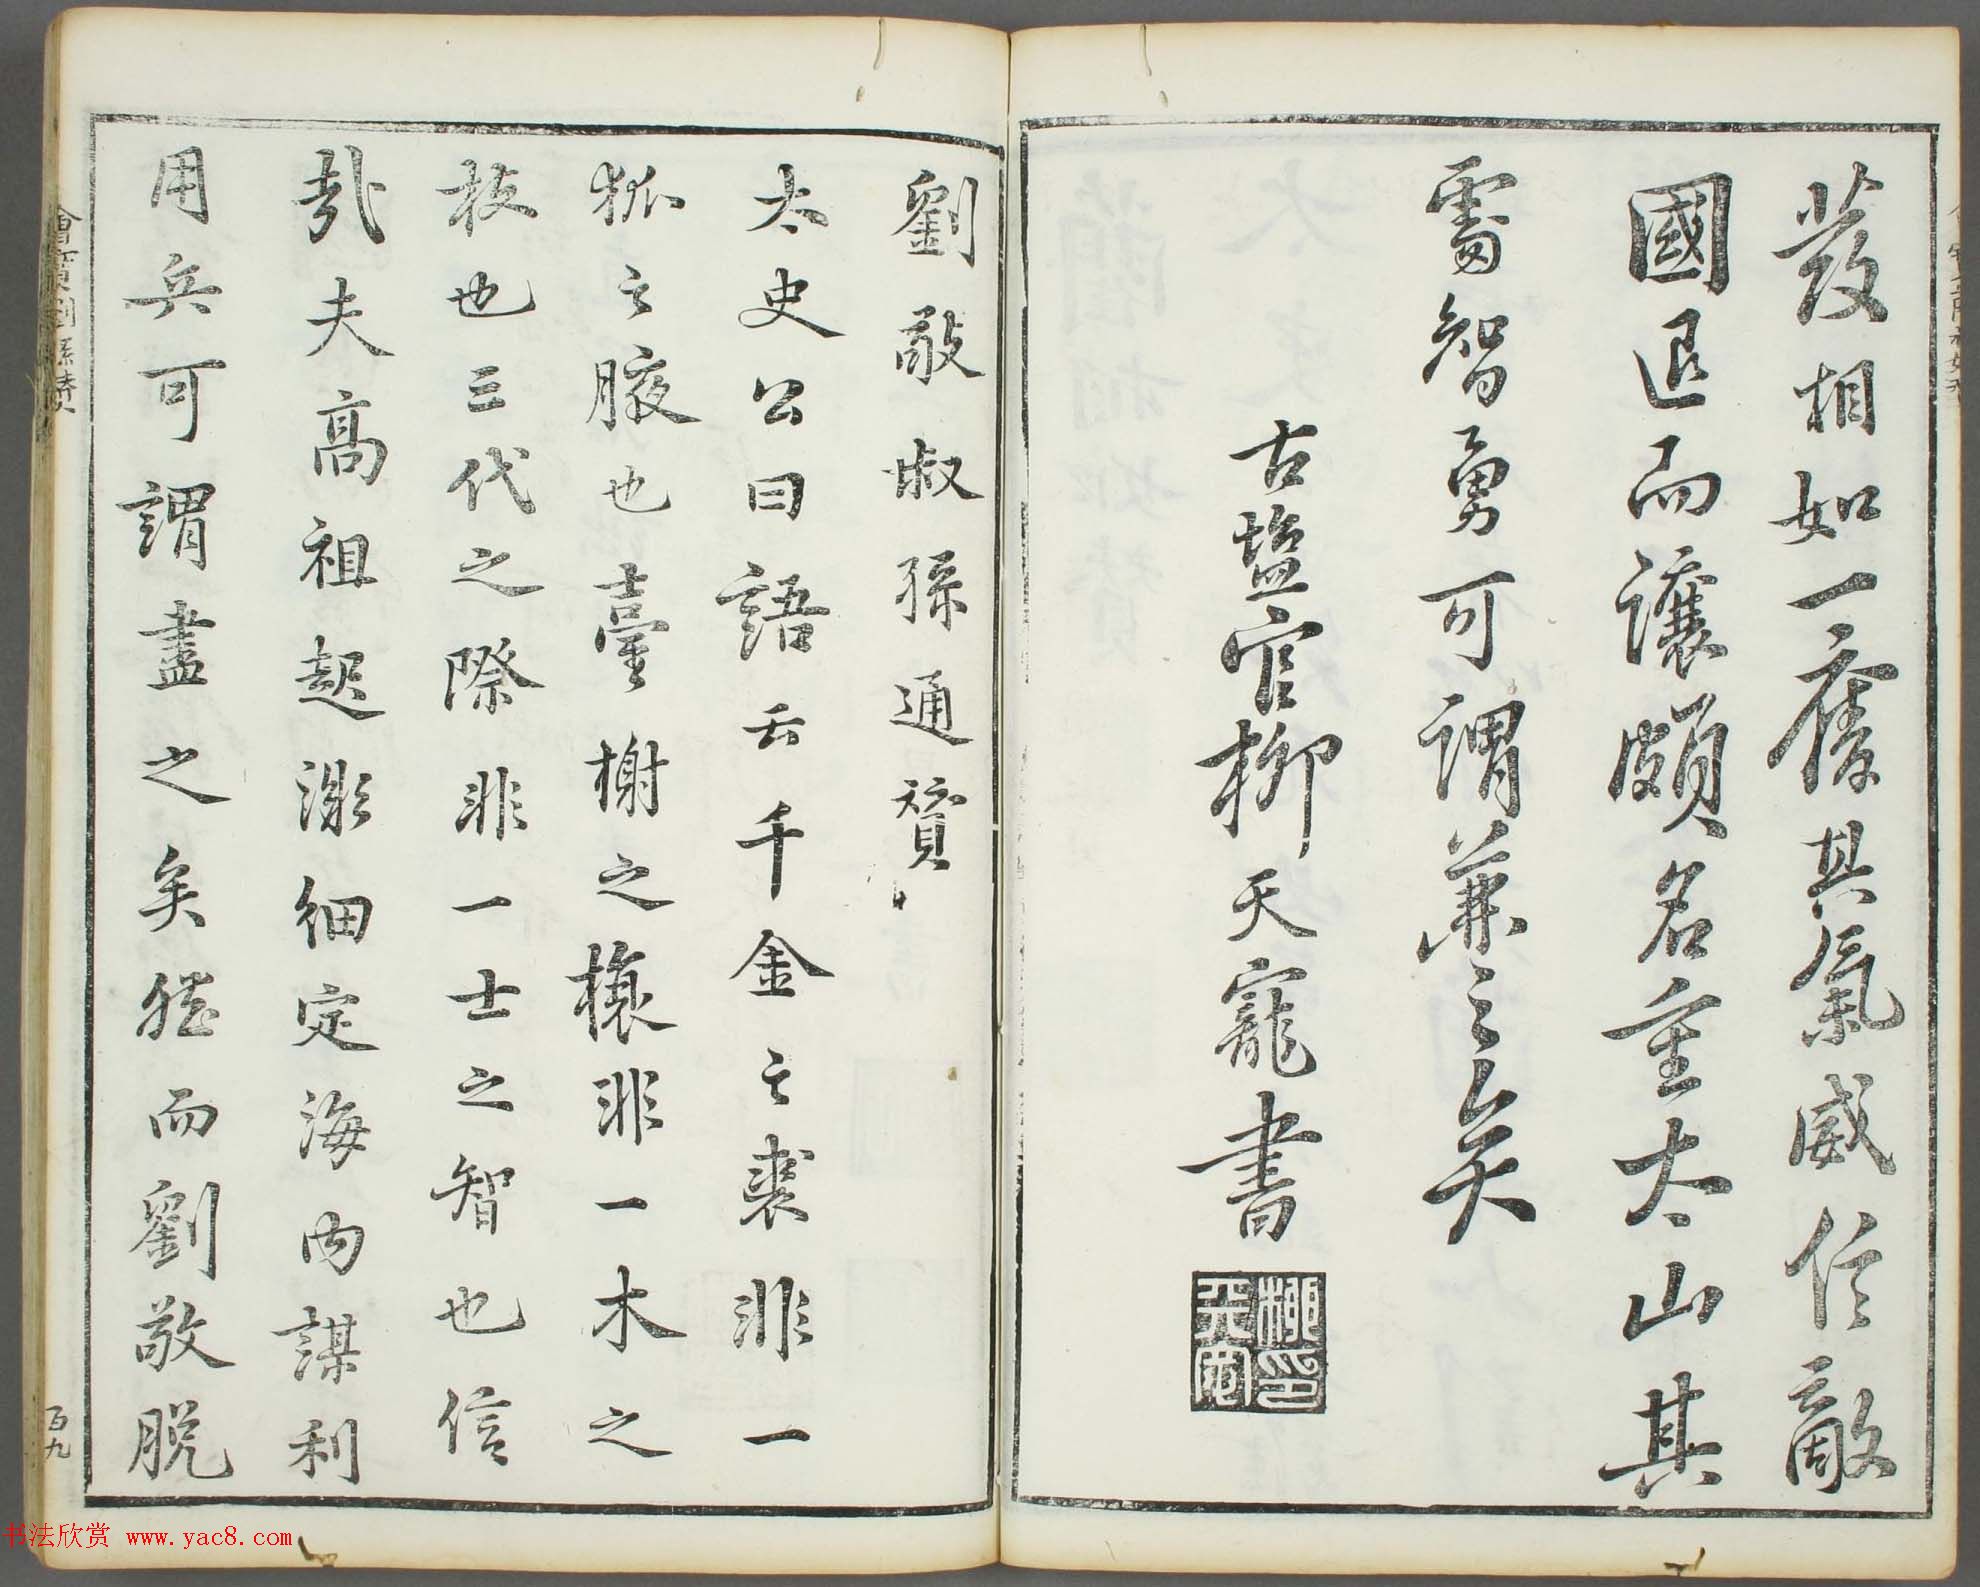 發相如一奮其氣威信敵
國退而讓頗名重太山其
處智勇可謂兼之矣
古塩官柳天寵書
柳印天寵
劉敬叔孫通贊
太史公曰語云千金之裘非一
狐之腋也臺榭之榱非一木之
枝也三代之際非一士之智也信
哉夫高祖起微細定海内謀利
用兵可謂盡之矣然而劉敬脱
百九
书法欣赏 www.yac8.com